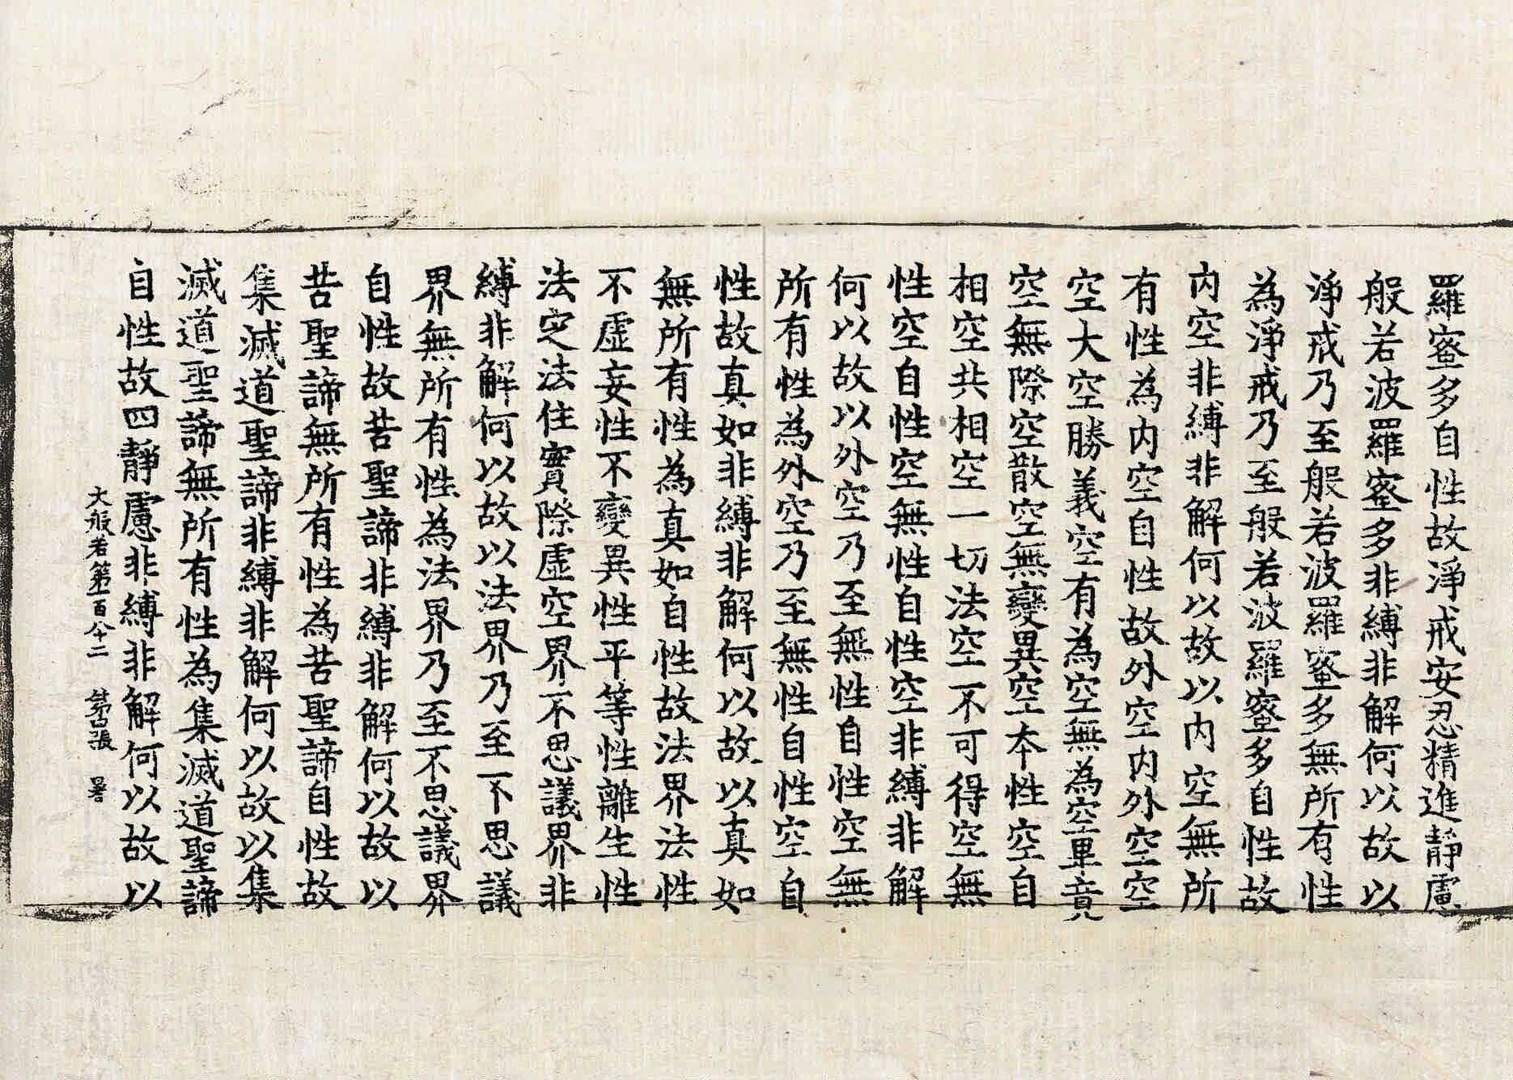 羅蜜多自性故淨戒安忍精進靜慮
般若波羅蜜多非縛非解何以故以
淨戒乃至般若波羅蜜多無所有性
為淨戒乃至般若波羅蜜多自性故
內空非縛非解何以故以內空無所
有性為內空自性故外空內外空空
空大空勝義空有為空無為空畢竟
空無際空散空無變異空本性空自
相空共相空一切法空不可得空無
性空自性空無性自性空非縛非解
何以故以外空乃至無性自性空無
所有性為外空乃至無性自性空自
性故真如非縛非解何以故以真如
無所有性為真如自性故法界法性
不虛妄性不變異性平等性離生性
法定法住實際虛空界不思議界非
縛非解何以故以法界乃至不思議
界無所有性為法界乃至不思議界
自性故苦聖諦非縛非解何以故以
苦聖諦無所有性為苦聖諦自性故
集滅道聖諦非縛非解何以故以集
滅道聖諦無所有性為集滅道聖諦
自性故四靜慮非縛非解何以故以
大般若第一百八十二 第十四張 署